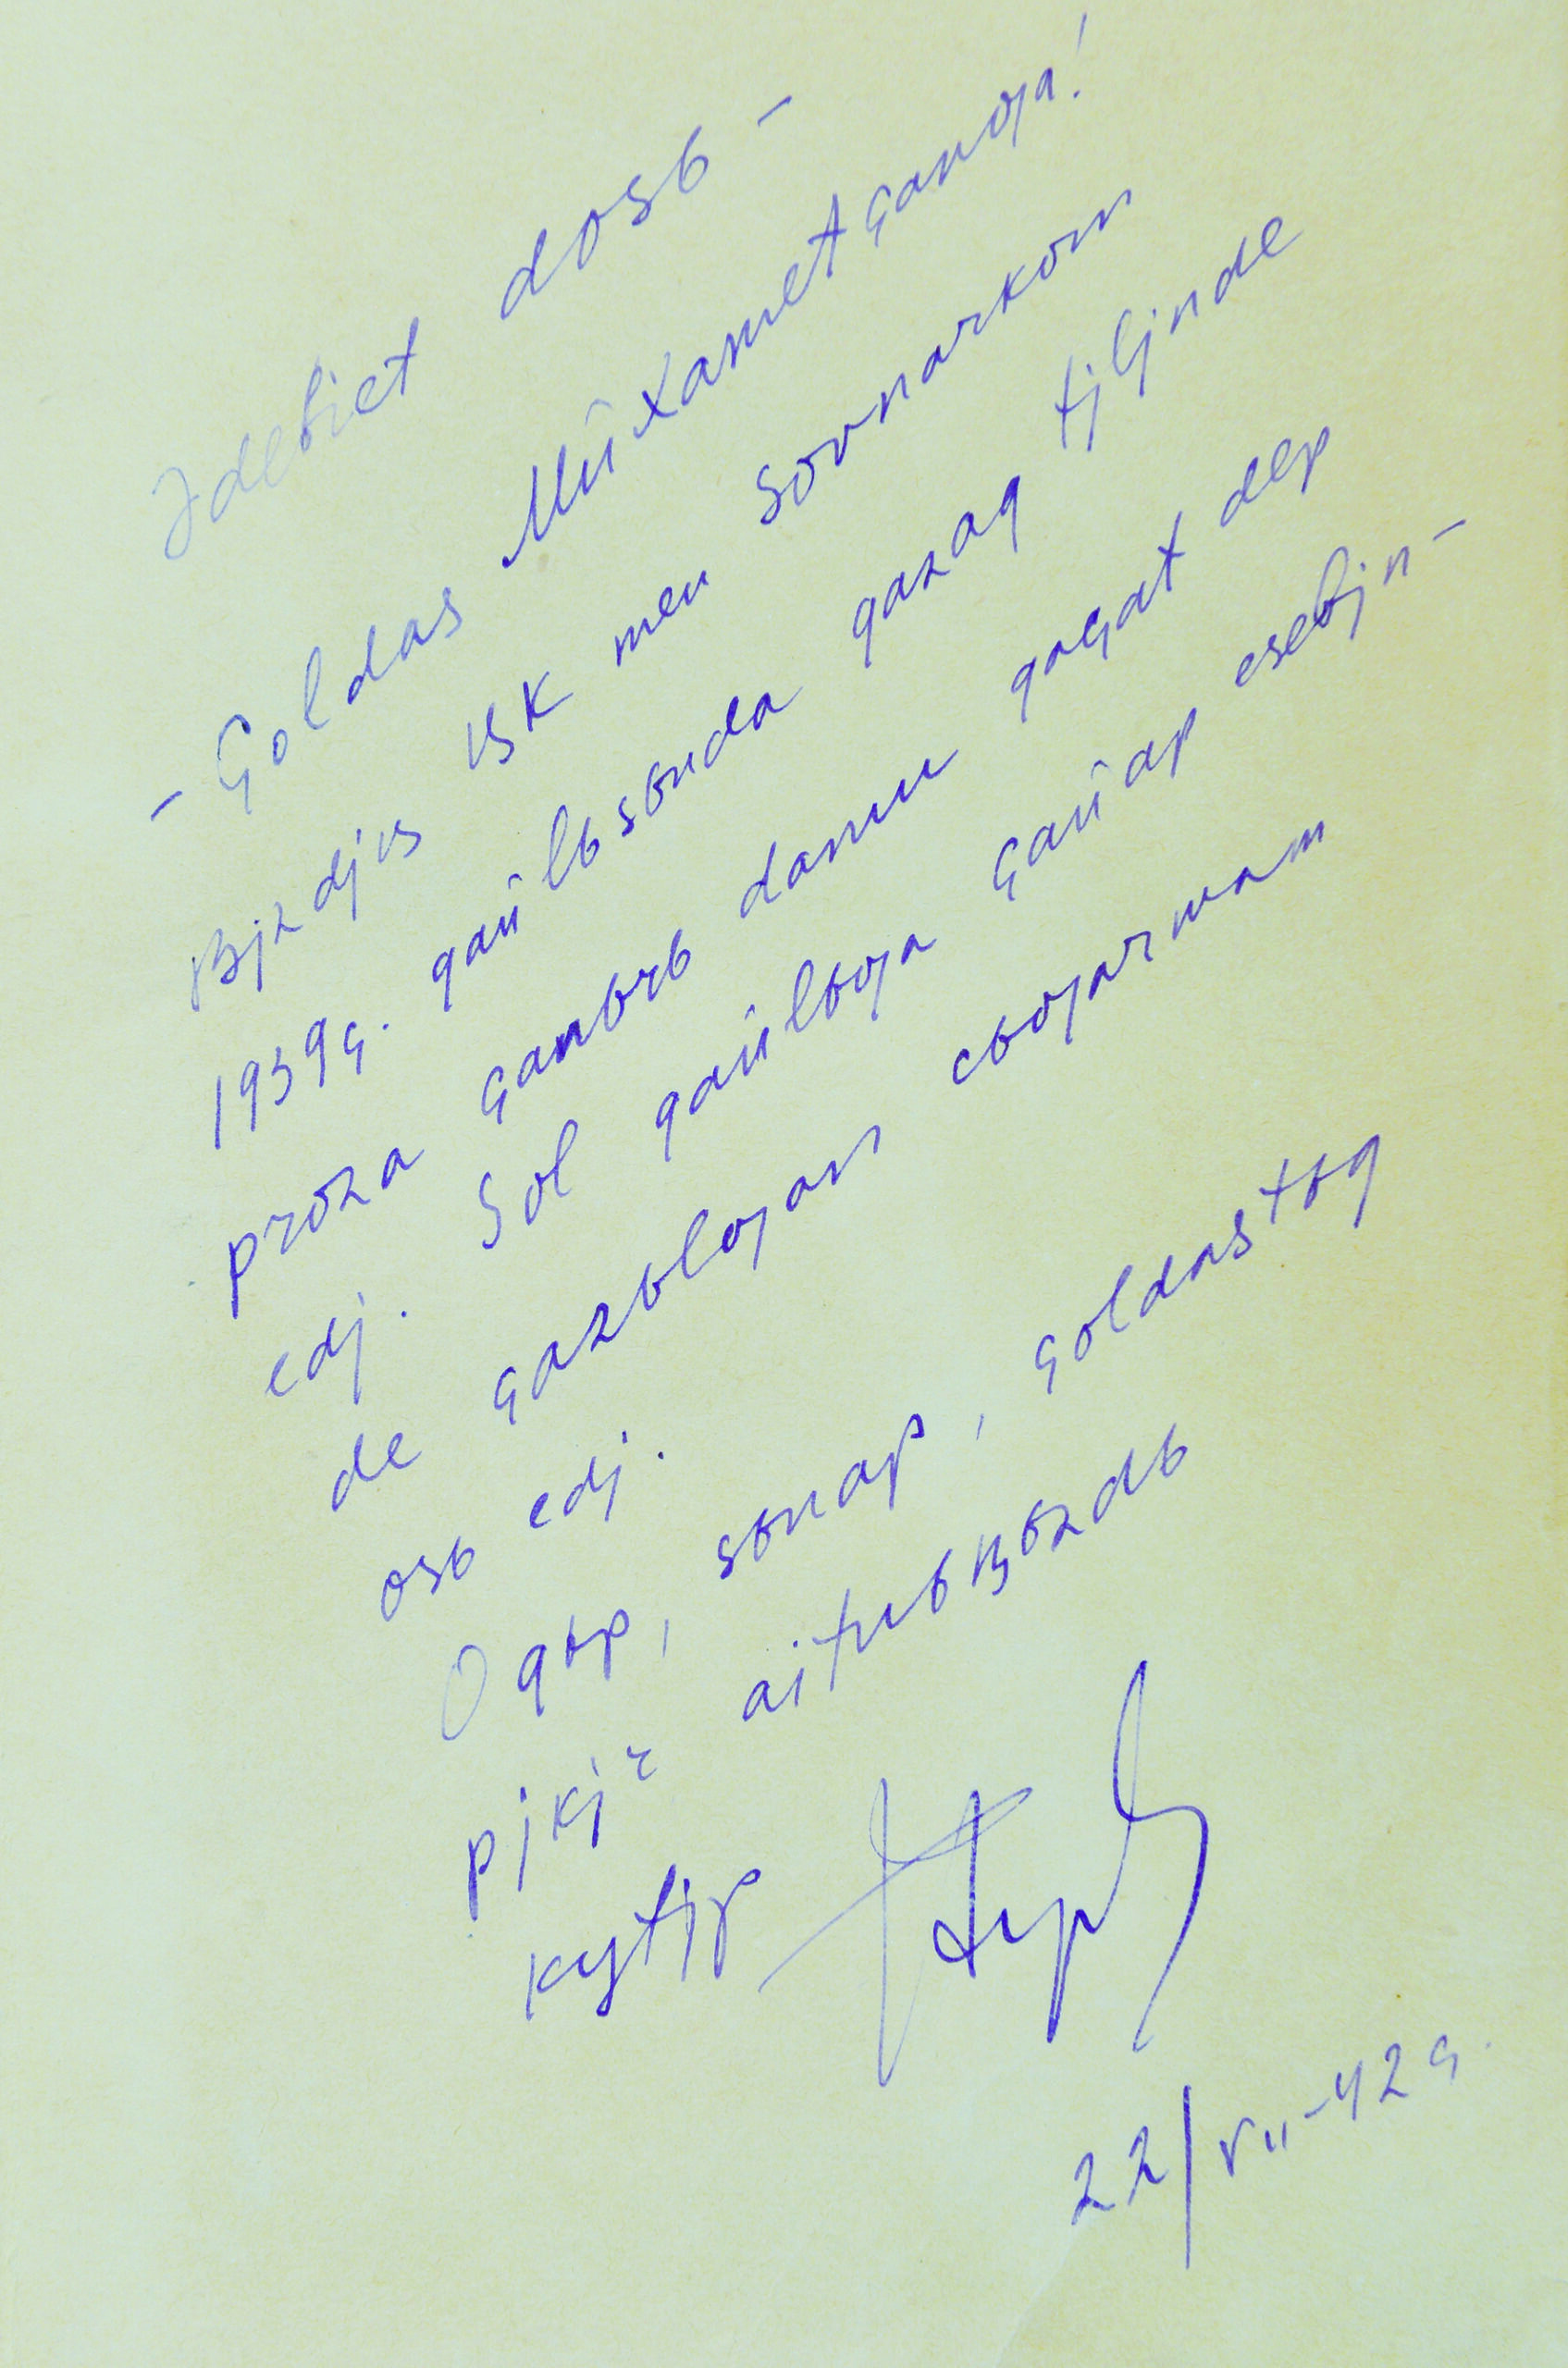 Ədebiet dosь –
– Çoldas Mūxametçanƣa!
Bjzdjꞑ ʙK men Sovnarkom
1939ç. qaūlьsьnda qazaq tjljnde
proza çanrь damu qaçat dep
edj. Sol qaūlьƣa çaūap esebjn–
de çazьlƣan cьƣarmam
osь edj.
Oqьp, sьnap, çoldastьq
pjkjr aituьꞑьzdь
kytjp
22/VII–42ç.